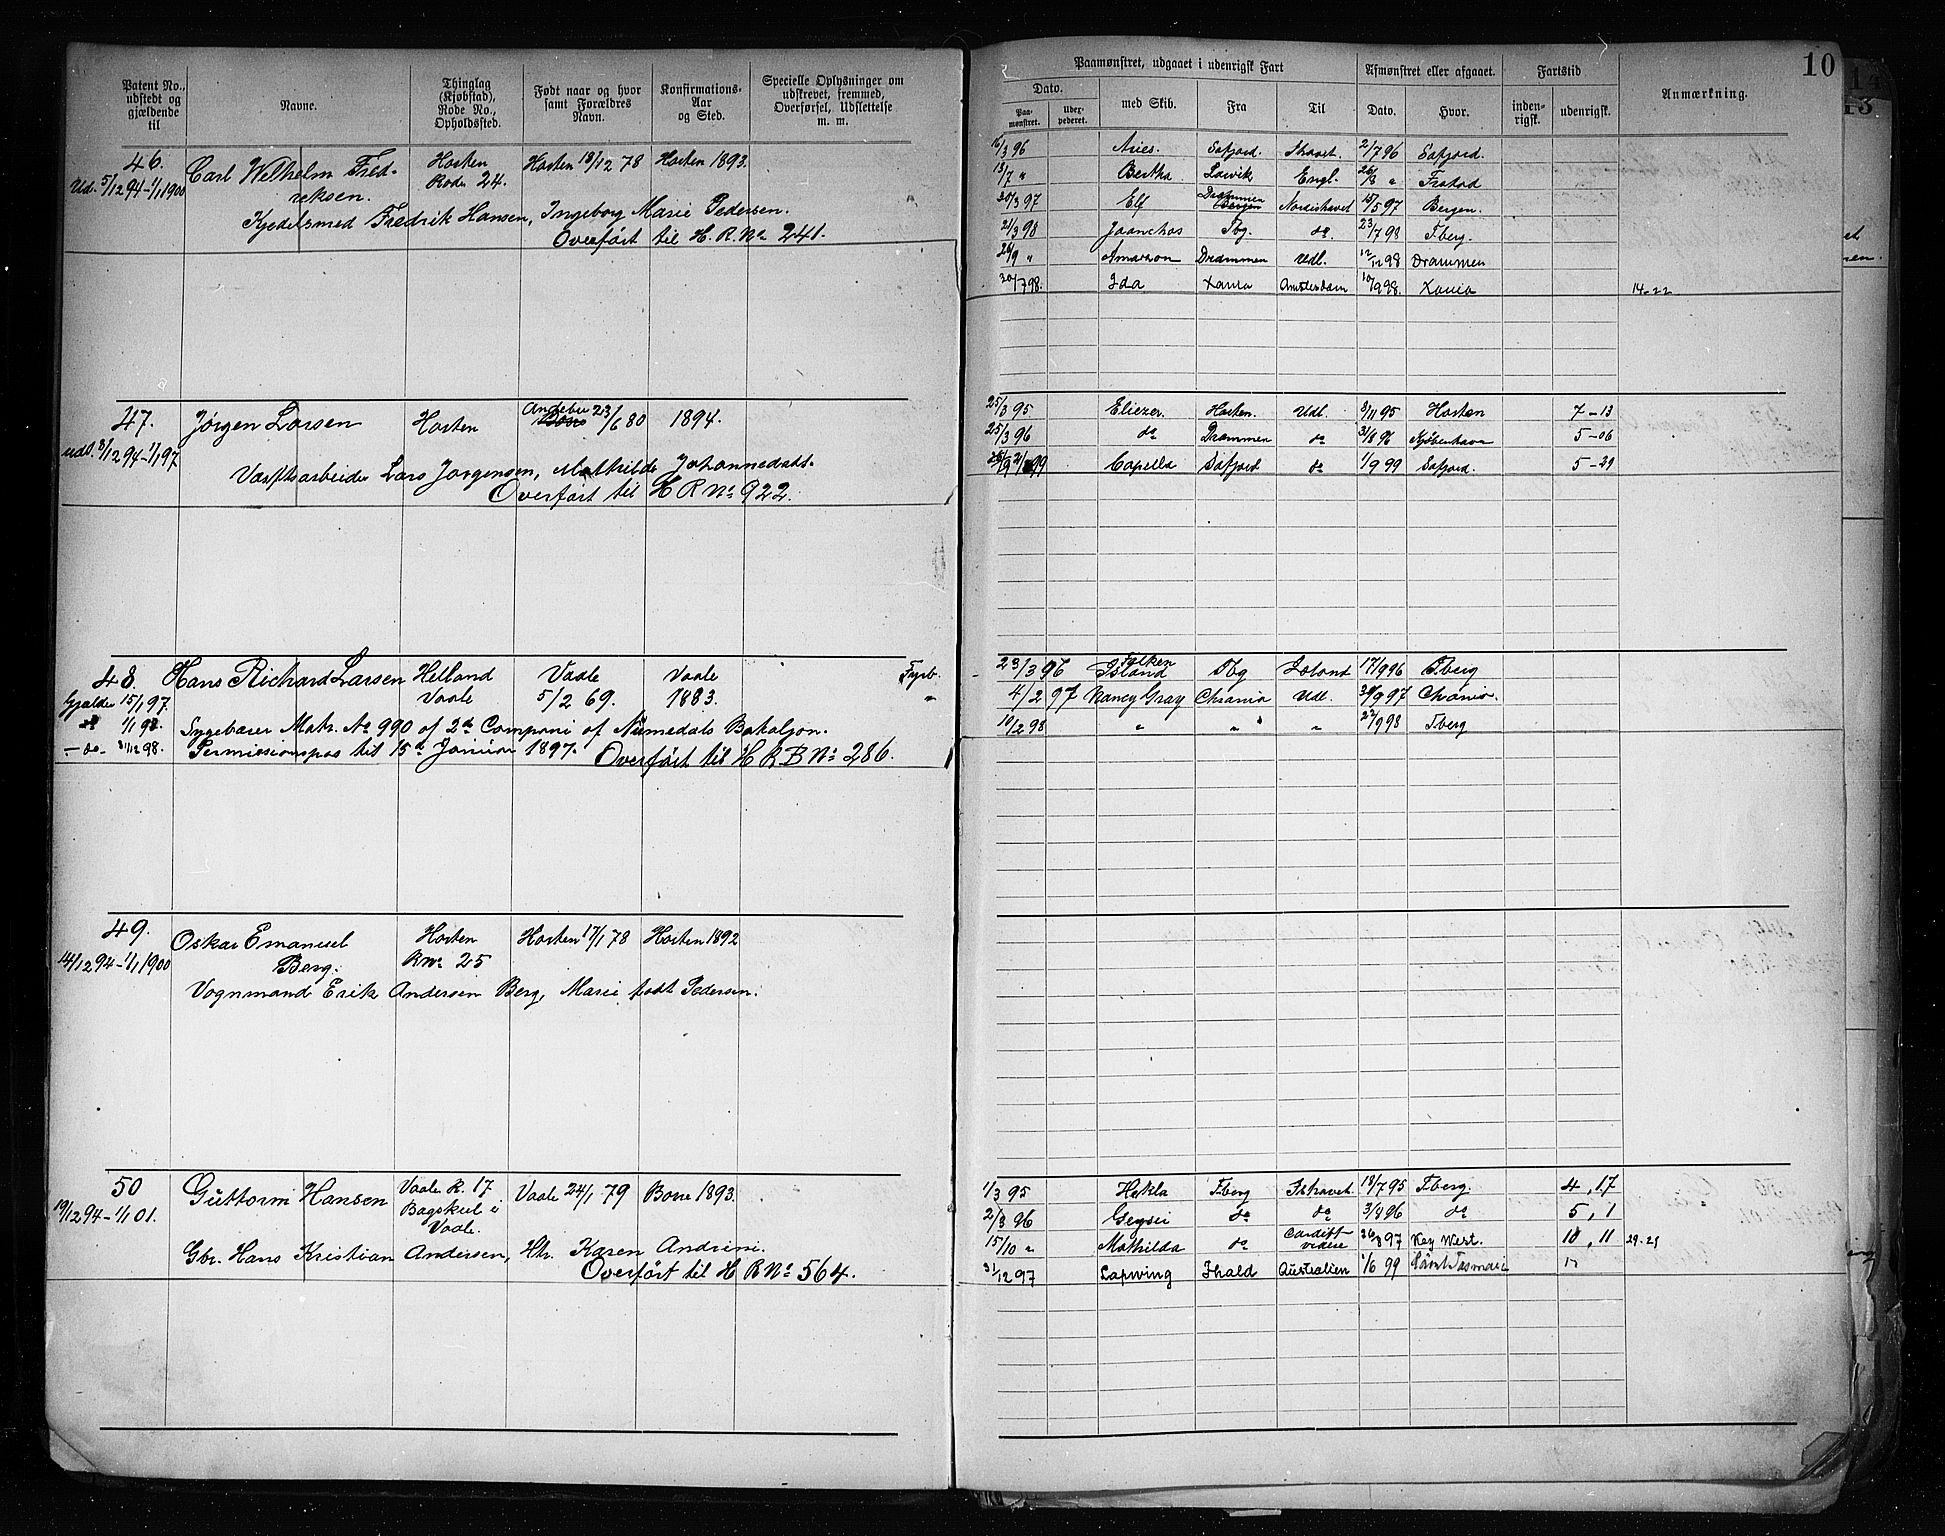 Patent No., udstedt og gjældende til
Navne.
Thinglag (Kjøbstad), Rode No., Opholdssted.
Født naar og hvor samt Forældres Navn.
Konfirmations-Aar og Sted.
Specielle Oplysninger om udskrevet, fremmed, Overførsel, Udslettelse m. m.
46. Carl Wilhelm Fred- Horten Horten 18/12 78 Horten 1893.
Ud. 5/12 94-1/1 1900 reksen. Rode 24.
Kjedelsmed Fredrik Hansen, Ingeborg Marie Pedersen.
Overført til H. R. No 241.
47. Jørgen Larsen Horten Andebu 23/6 80 1894.
udl. 8/12 94-1/1 97
Værftsarbeider Lars Jørgensen, Mathilde Johannesdat.
Overført til H R No 922.
48. Hans Richard Larsen Helland Vaale Vaale Fyrb.
Gjælder 15/1 97. Vaale 5/2 69. 1883. "
do 1/1 98. Ingebærer Matr. No 990 of 2d Compani of Numedals Bataljon.
- do - 31/12 98. Permissionspas til 15d Januar 1897. Overført til H R B No 286.
49. Oskar Emanuel Horten Horten 17/1 78 Horten 1892
14/12 94-1/1 1900 Berg. R No 25
Vognmand Erik Andersen Berg, Marie født Pedersen.
50 Guttorm Hansen Vaale R. 17 Vaale 24/1 79 Borre 1893.
19/12 94-1/1 01. Bagskul i
Vaale.
Gbr. Hans Kristian Andersen, Htr. Karen Andrini.
Overført til H R No 564.
10
Paamønstret, udgaaet i udenrigsk Fart
Afmønstret eller afgaaet.
Fartstid
Anmærkning.
Dato.
Paa-mønstret.
Udex-pederet.
med Skib.
Fra
Til
Dato.
Hvor.
inden-rigsk.
udenrigsk.
16/3 96 Aries. Safjord. Ishavet. 2/7 96 Safjord.
13/7 " Bertha Larvik Engl. 26/8 " Frstad
20/3 97 Elf Drammen Nordishavet 15/5 97 Bergen.
21/3 98 Tbg. do 23/7 98 Tberg.
26/9 " Amazon Drammen Udl. 12/12 98 Drammen
30/7 98. Ida Xania Amsterdam 10/9 98. Xania 14-22
25/3 95 Eliezer. Horten. Udl. 8/11 95 Horten 7-13
25/3 96 do Drammen do 31/8 96 Kjøbenhavn 5-06
Capella Safjord do 1/9 99 Safjord. 5-29
23/3 96 Falken Island Tbg Island 17/9 96 Tberg
4/2 97 Nancy Gray Chrania Udl. 30/9 97 Chrania.
10/2 98 " " " " 27/9 98 Tberg
1/3 95 Hekla Tberg Ishavet 18/7 95 Tberg. 4, 17
2/3 96 Geysir do do 3/8 96 do 5, 1
15/10 " Mathilda do Cardiff videre 26/8 97 Key West. 10, 11 29-29
31/12 97 Lapwing Fhald Australien 1/6 99 17